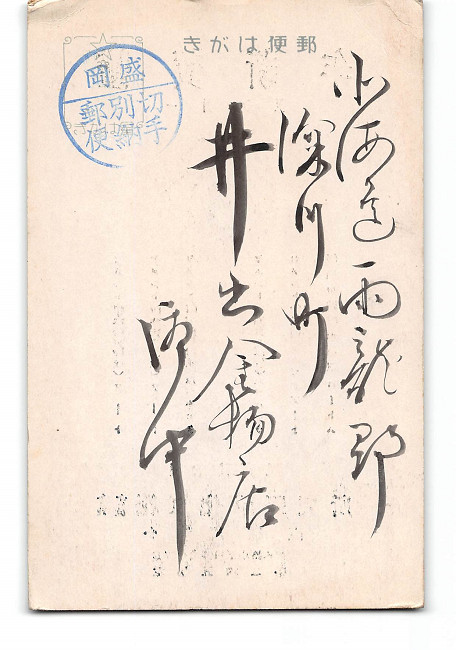 郵便はがき
盛岡
切手
別納
郵便
北海道雨龍郡
深川町
井出金物店
御中